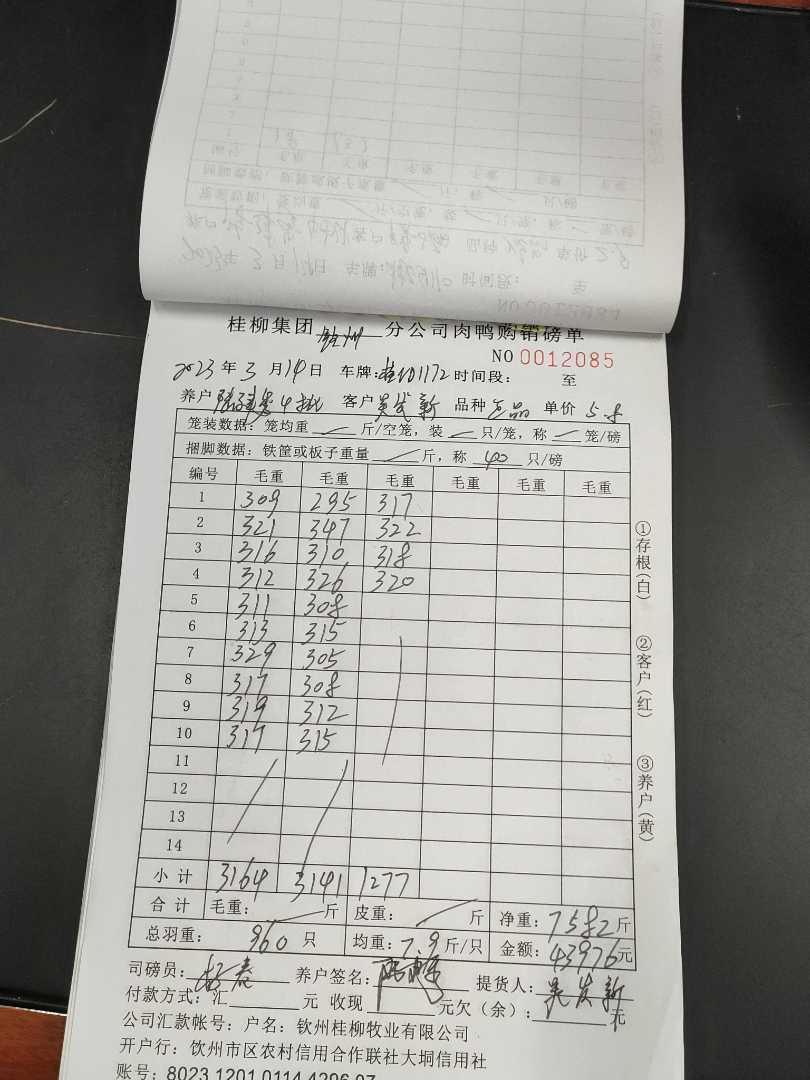 桂柳集团 钦州 分公司肉鸭购销磅单
NO 0012085
2023年3月14日 车牌: 1172 时间段: 至
养户 4批 客户 吴发新 品种 单价 5.8
笼装数据: 笼均重 斤/空笼, 装 只/笼, 称 笼/磅
捆脚数据: 铁筐或板子重量 斤, 称 40 只/磅
编号 毛重 毛重 毛重 毛重 毛重 毛重
1 309 295 317
2 321 347 322
3 316 310 318
4 312 326 320
5 311 308
6 313 315
7 329 305
8 317 308
9 319 312
10 317 315
11
12
13
14
小计 3164 3141 1277
合计 毛重: 斤 皮重: 斤 净重: 7582斤
总羽重: 960 只 均重: 7.9斤/只 金额: 43976元
司磅员: 养户签名: 提货人: 吴发新
付款方式: 汇 元 收现 元欠(余): 元
公司汇款帐号: 户名: 钦州桂柳牧业有限公司
开户行: 饮州市区农村信用合作联社大垌信用社
账号: 8023 1201 0114 4296 07
①存根(白) ②客户(红) ③养户(黄)